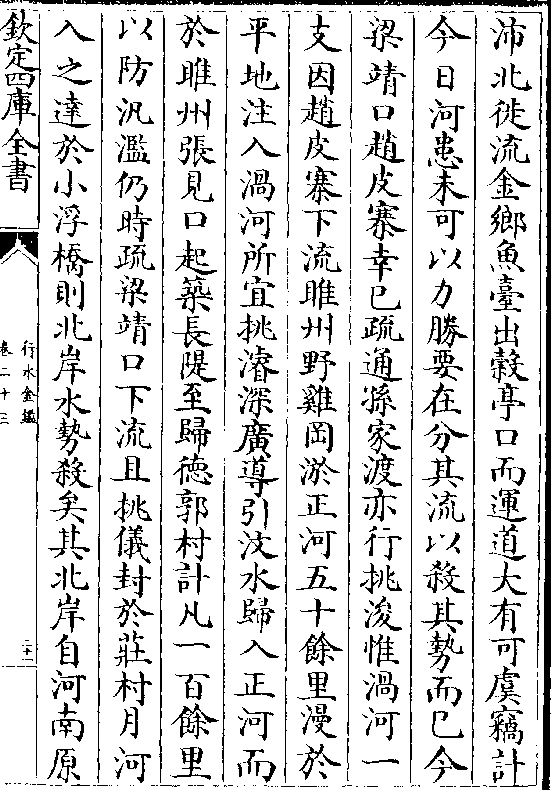 沛北徙流金鄉魚臺出榖亭口而運道大有可虞竊計
今日河患未可以力勝要在分其流以殺其勢而已今
梁靖口趙皮寨幸已疏通孫家渡亦行挑浚惟渦河一
支因趙皮寨下流睢州野雞岡淤正河五十餘里漫於
平地注入渦河所宜挑濬深廣導引汶水歸入正河而
於睢州張見口起築長隄至歸徳郭村計凡一百餘里
以防汎濫仍時疏梁靖口下流且挑儀封於莊村月河
入之達於小浮橋則北岸水勢殺矣其北岸自河南原
欽定四庫全書
行水金鑑
卷二十三
二十一